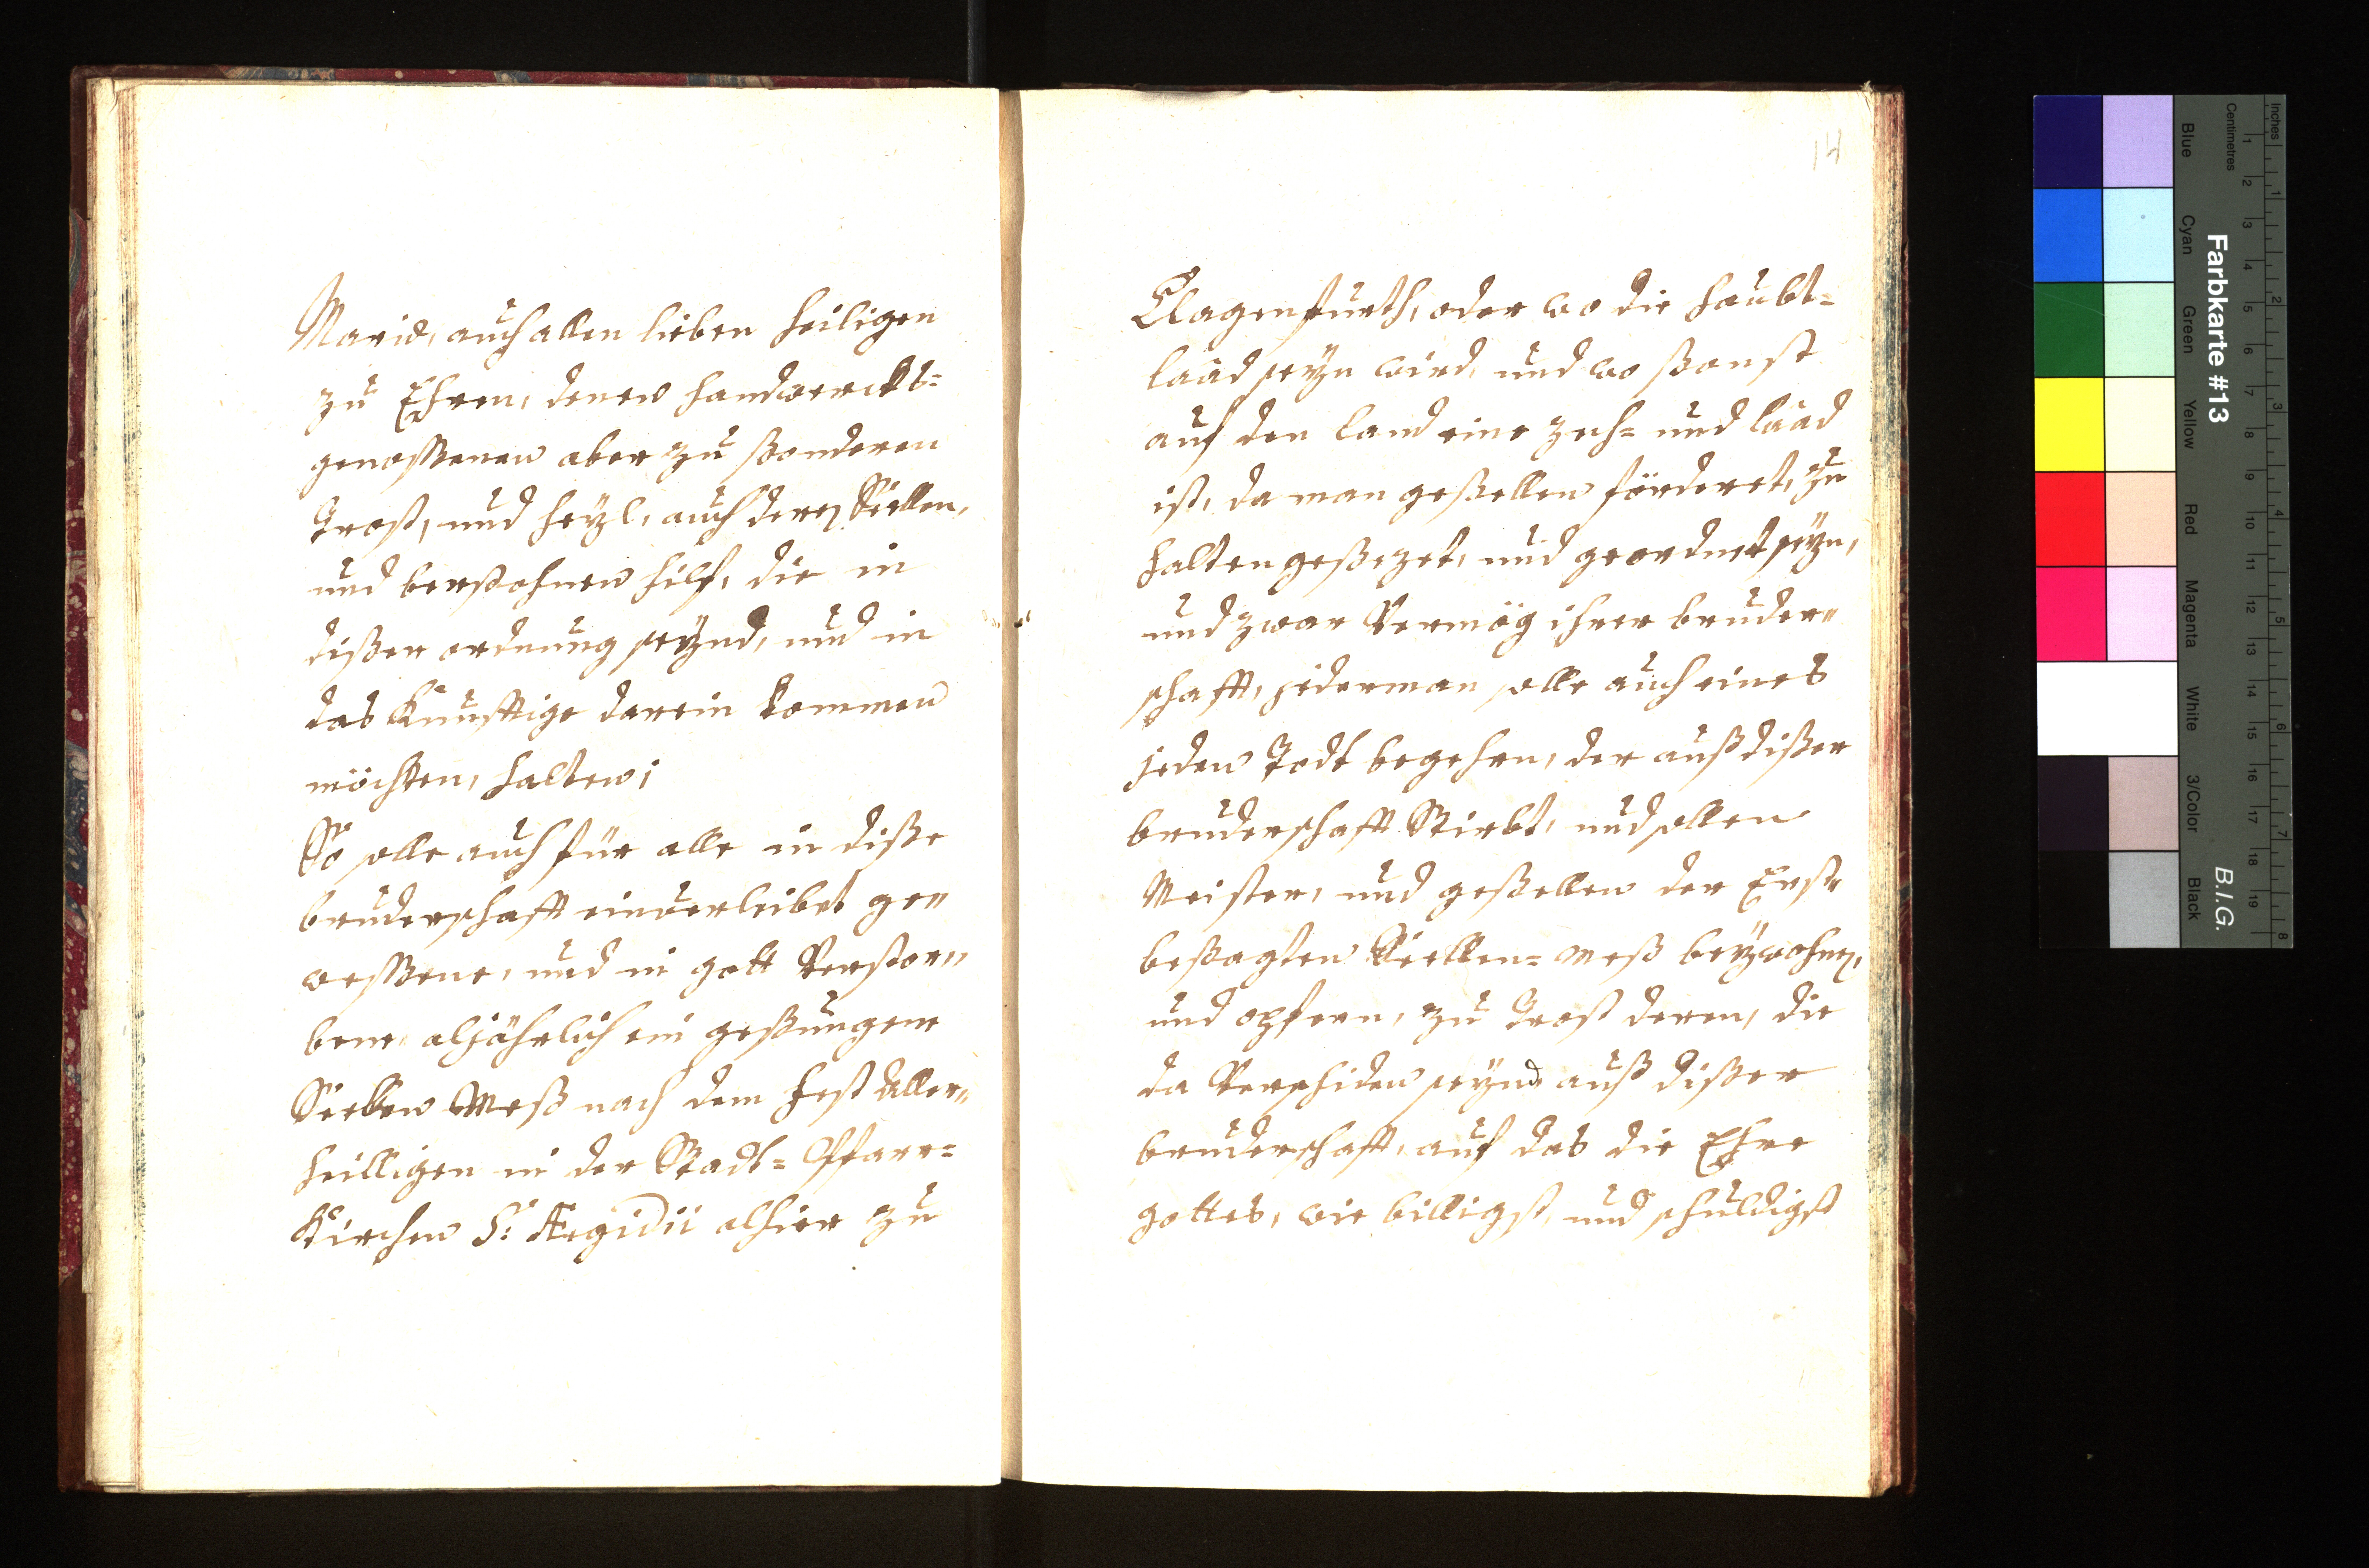 Mariæ, auch allen lieben heiligen
zu Ehren, denen handwerckhs=
genossenen aber zu sonderen
Trost, und heyl, auch deren Seellen,
und versohnen hilf, die in
diser ordnung seynd, und in
das Künfftige darein kommen
möchten, halten;
So solle auch für alle in dise
bruderschafft einverleibet ge"
wessene, und in gott Verstor"
bene, aljährlich ein gesungene
Seellen Mess nach dem Fest Aller"
heilligen in der Stadt= Pfarr=
Kirchen S: Ægidii alhier zu
14
Clagenfurth, oder wo die haubt=
laad seyn wird, und wo sonst
auf den land eine zech= und laad
ist, da man gesellen förderet, zu
halten gesezet, und geordnet seyn,
und zwar Vermög ihrer bruder"
schafft, jederman solle auch eines
jeden Todt begehen, der auß diser
bruderschafft Stirbt, und sollen
Meister, und gesellen der Erst"
besagten Seellen= mess beywohnen,
und opfern, zu Trost deren, die
da Verschiden seynd auß diser
bruderschafft, auf das die Ehre
gottes, wie billigst, und schuldigst
Farbkarte #13
B.I.G.
Inches
Centimetres
Blue
Cyan
Green
Yellow
Red
Magenta
White
3/Color
Black